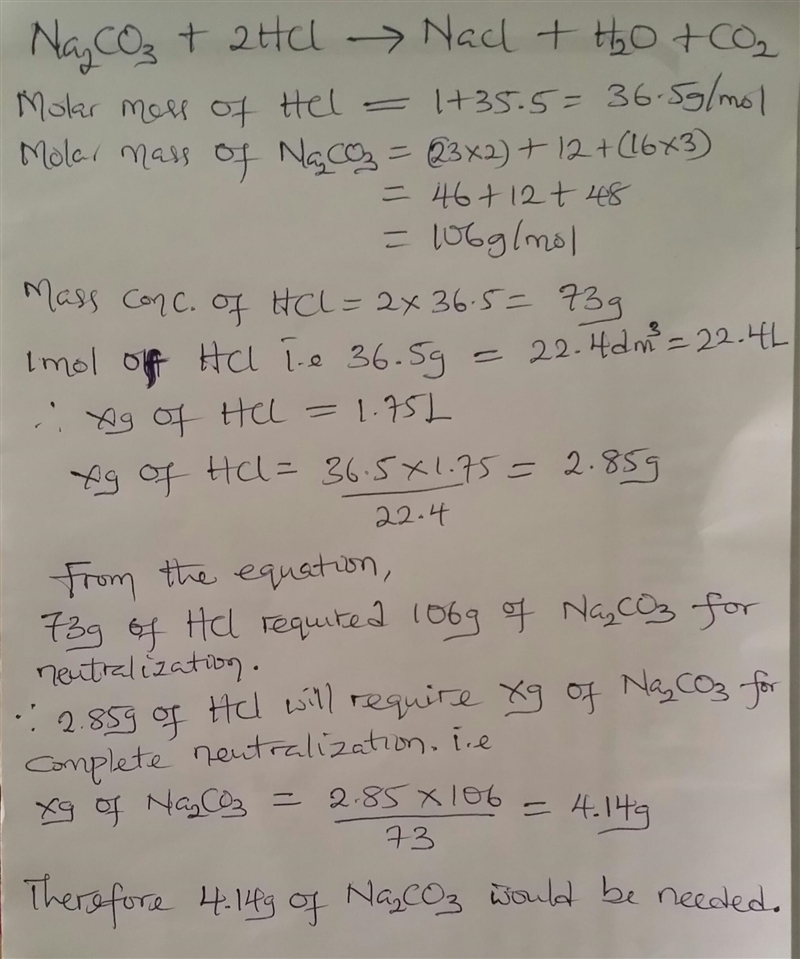 Na₂CO₃ + 2HCl → NaCl + H₂O + CO₂
Molar mass of HCl = 1+35.5 = 36.5g/mol
Molar mass of Na₂CO₃ = (23×2) + 12 + (16×3)
= 46 + 12 + 48
= 106g/mol
Mass Conc. of HCl = 2 × 36.5 = 73g
1mol of HCl i.e 36.5g = 22.4dm³ = 22.4L
∴ xg of HCl = 1.75L
xg of HCl = 36.5 × 1.75 = 2.85g
22.4
From the equation,
73g of HCl required 106g of Na₂CO₃ for
neutralization.
∵ 2.85g of HCl will require xg of Na₂CO₃ for
complete neutralization. i.e
xg of Na₂CO₃ = 2.85 × 106 = 4.14g
73
Therefore 4.14g of Na₂CO₃ would be needed.